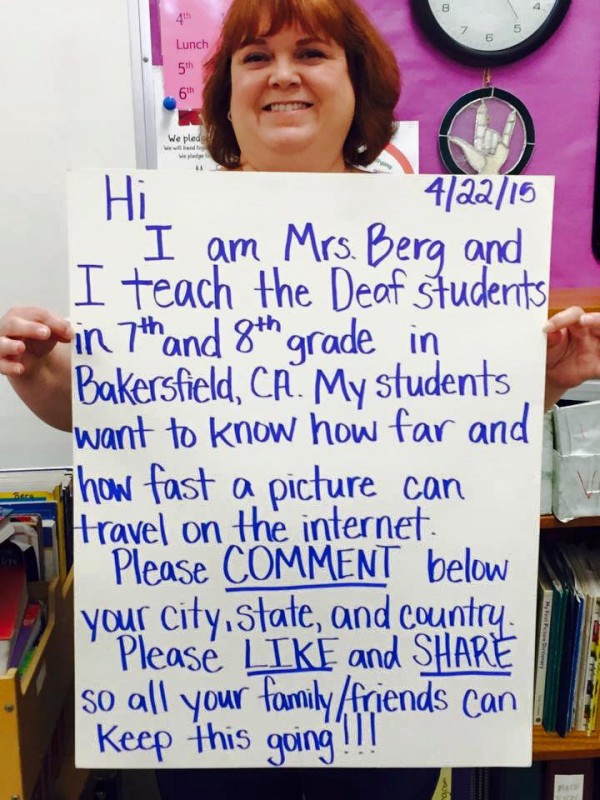 4th
Lunch
5th
6th
We pledge
Hi
4/22/15
I am Mrs. Berg and
I teach the Deaf students
in 7th and 8th grade in
Bakersfield, CA. My students
want to know how far and
how fast a picture can
travel on the internet.
Please COMMENT below
your city, state, and country.
Please LIKE and SHARE
so all your family/friends can
keep this going!!!
8
7
6
5
4